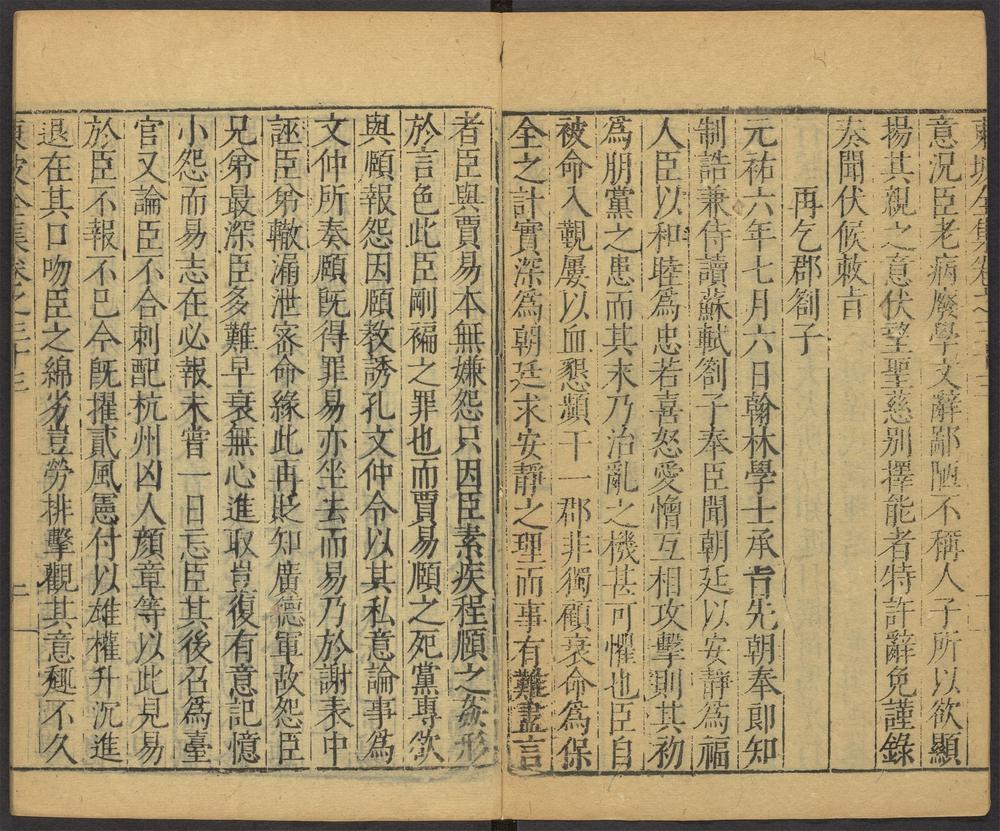 意況臣老病廢學文辭鄙陋不稱人子所以欲顯
揚其親之意伏望聖慈別擇能者特許辭免謹錄
奏聞伏候敕旨
再乞郡劄子
元祐六年七月六日翰林學士承旨先朝奉郎知
制誥兼侍讀蘇軾劄子奉臣聞朝廷以安靜為福
人臣以和睦為忠若喜怒愛憎互相攻擊則其初
為朋黨之患而其末乃治亂之機甚可懼也臣自
被命入覲屢以血懇頻干一郡非獨顧衰命為保
全之計實深為朝廷求安靜之理而事有難盡言
者臣與賈易本無嫌怨只因臣素疾程頤之姦形
於言色此臣剛褊之罪也而賈易頤之死黨專欲
與頤報怨因頤教誘孔文仲令以其私意論事為
文仲所奏頤既得罪易亦坐去而易乃於謝表中
誣臣弟轍漏泄密命緣此再貶知廣德軍故怨臣
兄弟最深臣多難早衰無心進取豈復有意記憶
小怨而易志在必報未嘗一日忘臣其後召為臺
官又論臣不合刺配杭州凶人顏章等以此見易
於臣不報不已今既擢貳風憲付以雄權升沉進
退在其口吻臣之綿劣豈勞排擊觀其意趣不久